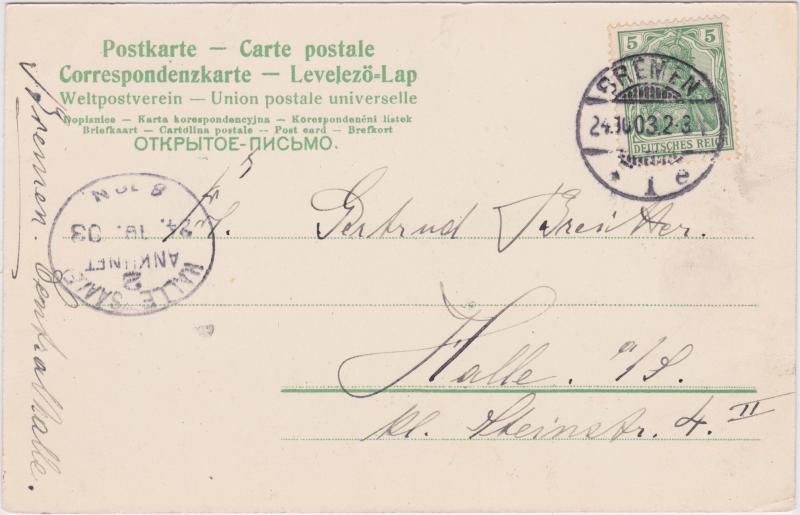 Postkarte — Carte postale
Correspondenzkarte — Levelező-Lap
Weltpostverein — Union postale universelle
Dopisnice — Karta korespondencyjna — Korespondenční lístek
Briefkaart — Cartolina postale — Post card — Brefkort
ОТКРЫТОЕ-ПИСЬМО.
5 5
DEUTSCHES REICH
BREMEN
24.10.03.2-3
* 1 e
HALLE (SAALE)
2
ANKUNFT
24. 10. 03
8-10 N.
Frl. Gertrud Breitter.
Halle. a/S.
kl. Steinstr. 4. II
Bremen. Centralhalle.